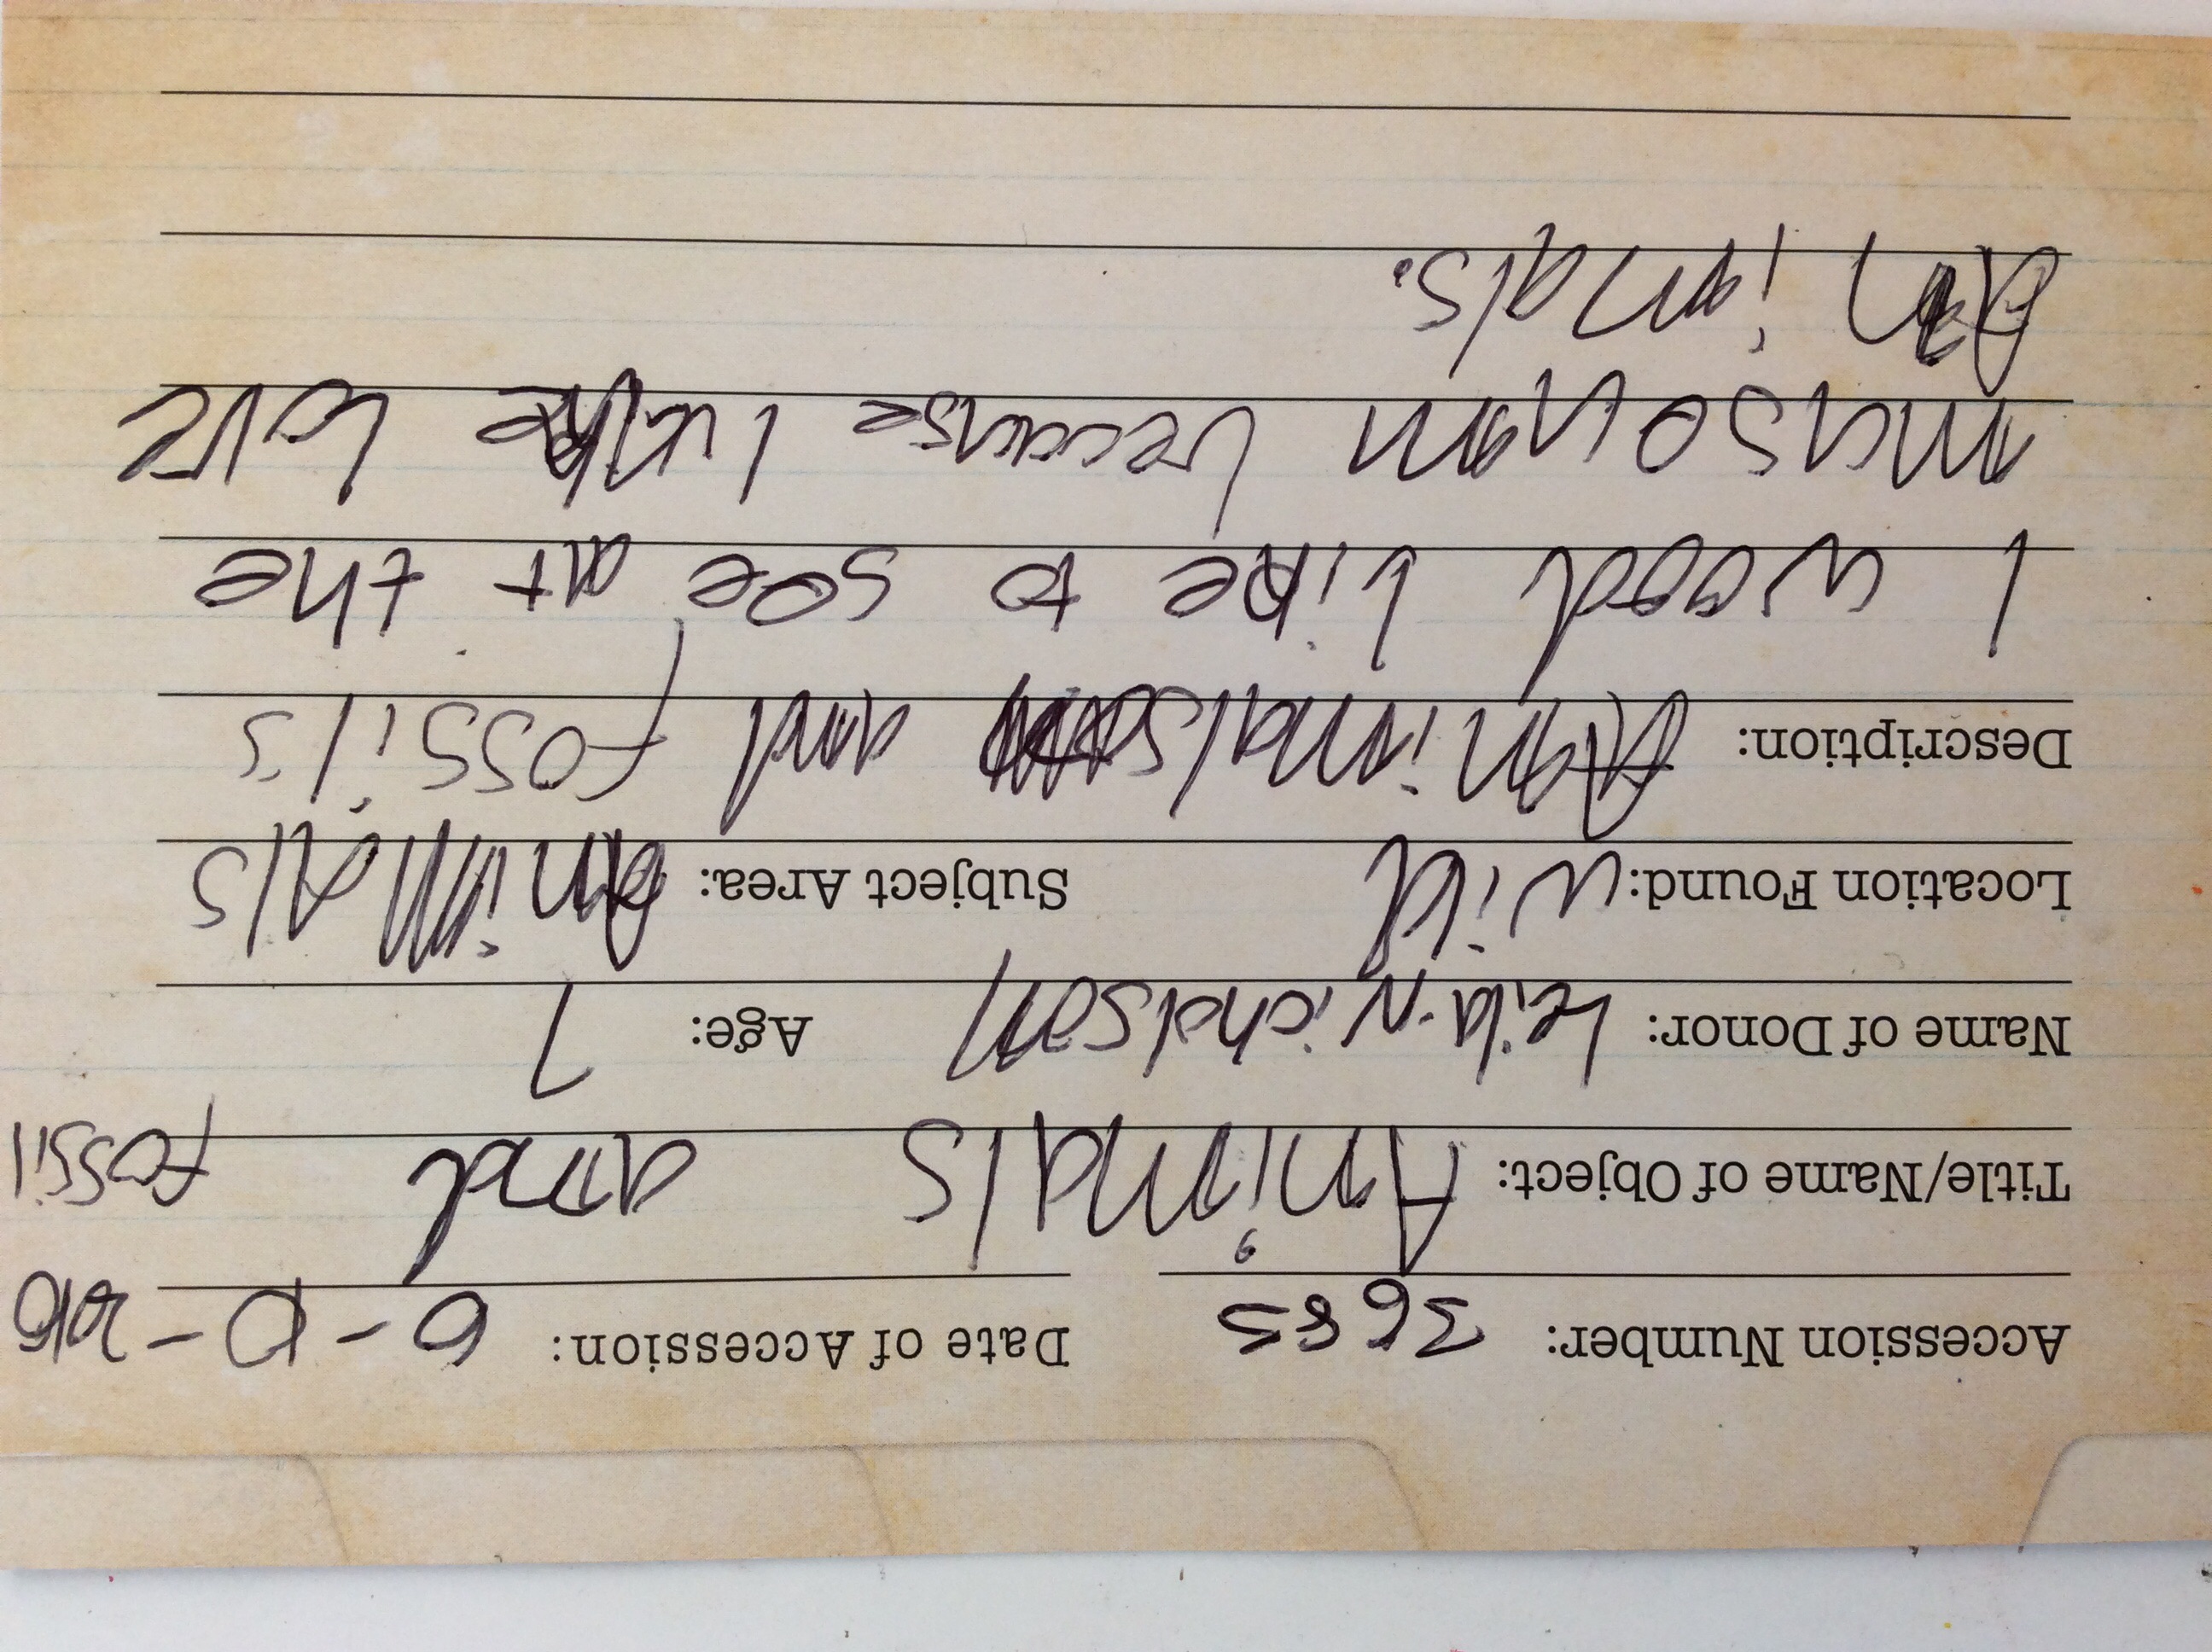 Accession Number: 3685 Date of Accession: 6-10-2016
Title/Name of Object: Animals and fossil
Name of Donor: Leila-Nicholson Age: 7
Location Found: wild Subject Area: Animals
Description: Animals and fossils
I woood Like to see at the
museoum because I love
Animals.